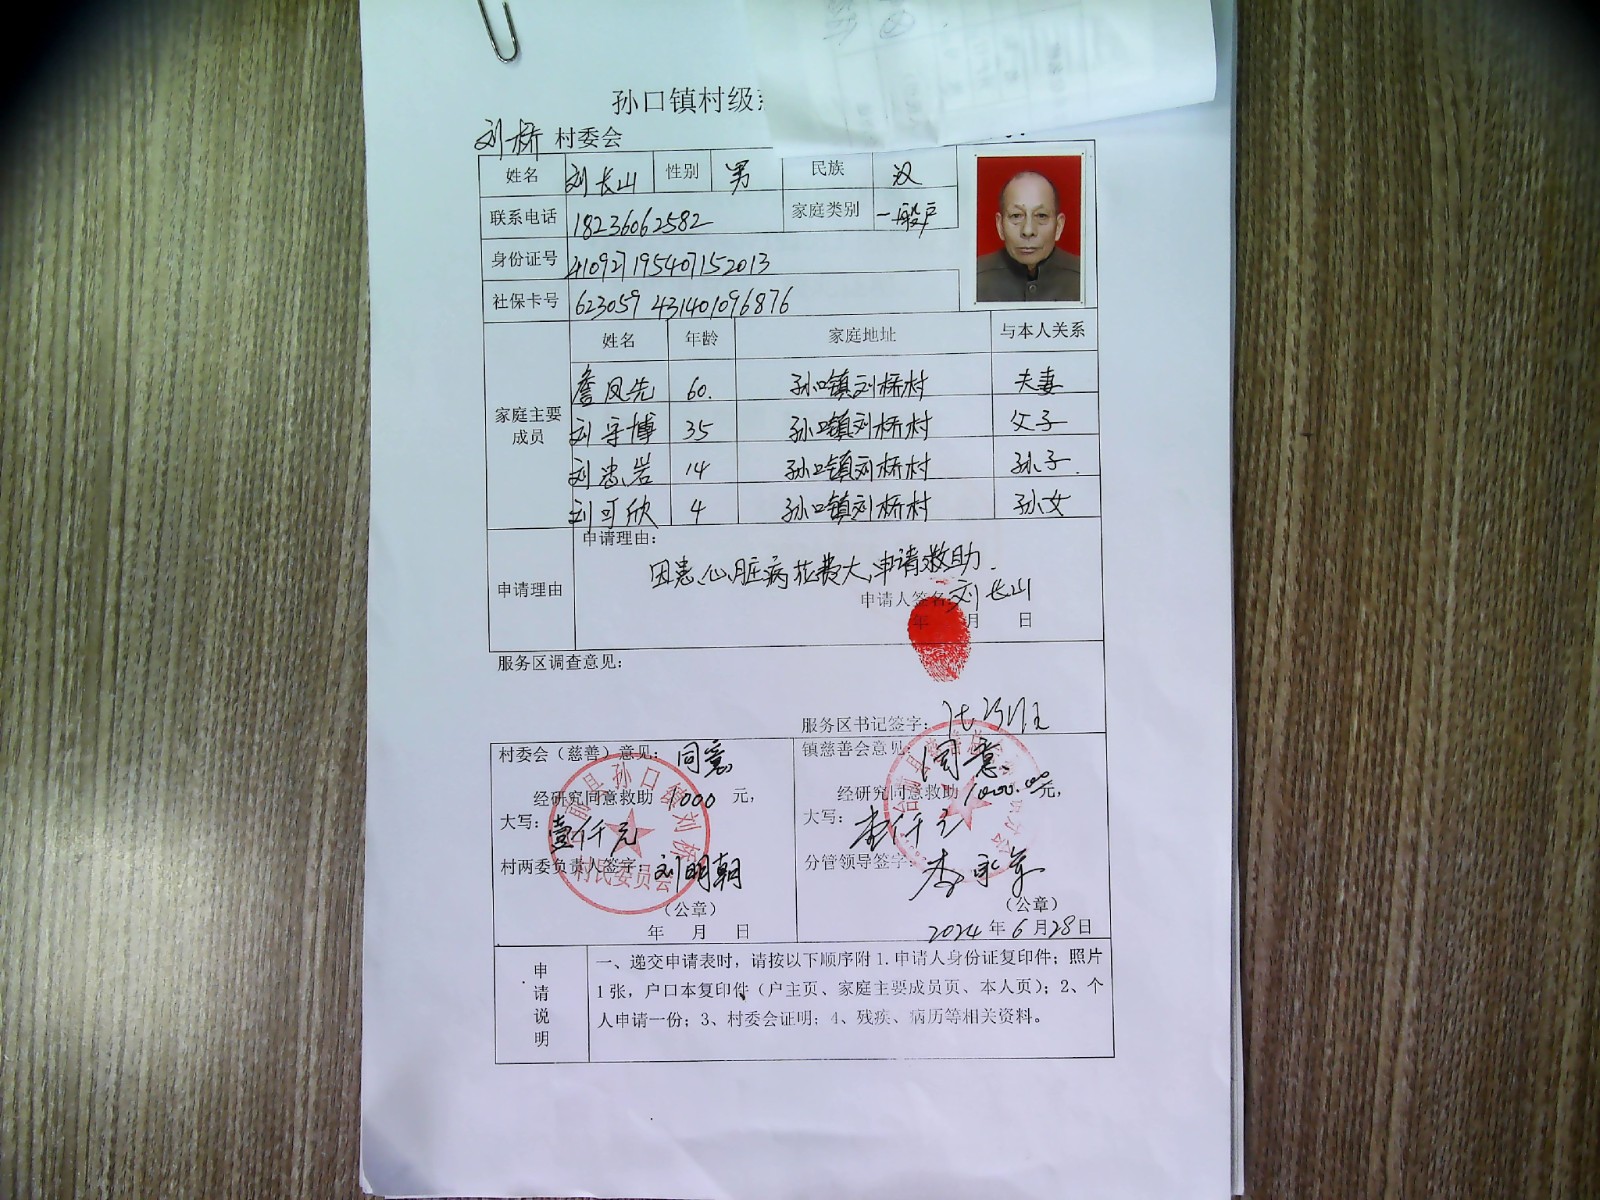 孙口镇村级
刘桥 村委会
姓名 刘长山 性别 男 民族 汉
联系电话 18236062582 家庭类别 一般户
身份证号 410927195407152013
社保卡号 623059 431401096876
家庭主要成员 姓名 年龄 家庭地址 与本人关系
詹凤先 60. 孙口镇刘桥村 夫妻
刘守博 35 孙口镇刘桥村 父子
刘 岩 14 孙口镇刘桥村 孙子.
刘可欣 4 孙口镇刘桥村 孙女
申请理由 申请理由:
因患心脏病花费大,申请救助.
申请人签名 刘长山
年 月 日
服务区调查意见:
服务区书记签字:
村委会（慈善）意见: 同意
经研究同意救助 1000 元,
大写: 壹仟元
村两委负责人签字: 刘明朝
（公章）
年 月 日
孙口镇刘桥
村民委员会
镇慈善会意见: 同意
经研究同意救助 1000.00元,
大写: 壹仟元
分管领导签字: 李永军
（公章）
2024 年 6 月 28 日
申请说明
一、递交申请表时，请按以下顺序附 1.申请人身份证复印件；照片
1 张，户口本复印件（户主页、家庭主要成员页、本人页）；2、个
人申请一份；3、村委会证明；4、残疾、病历等相关资料。